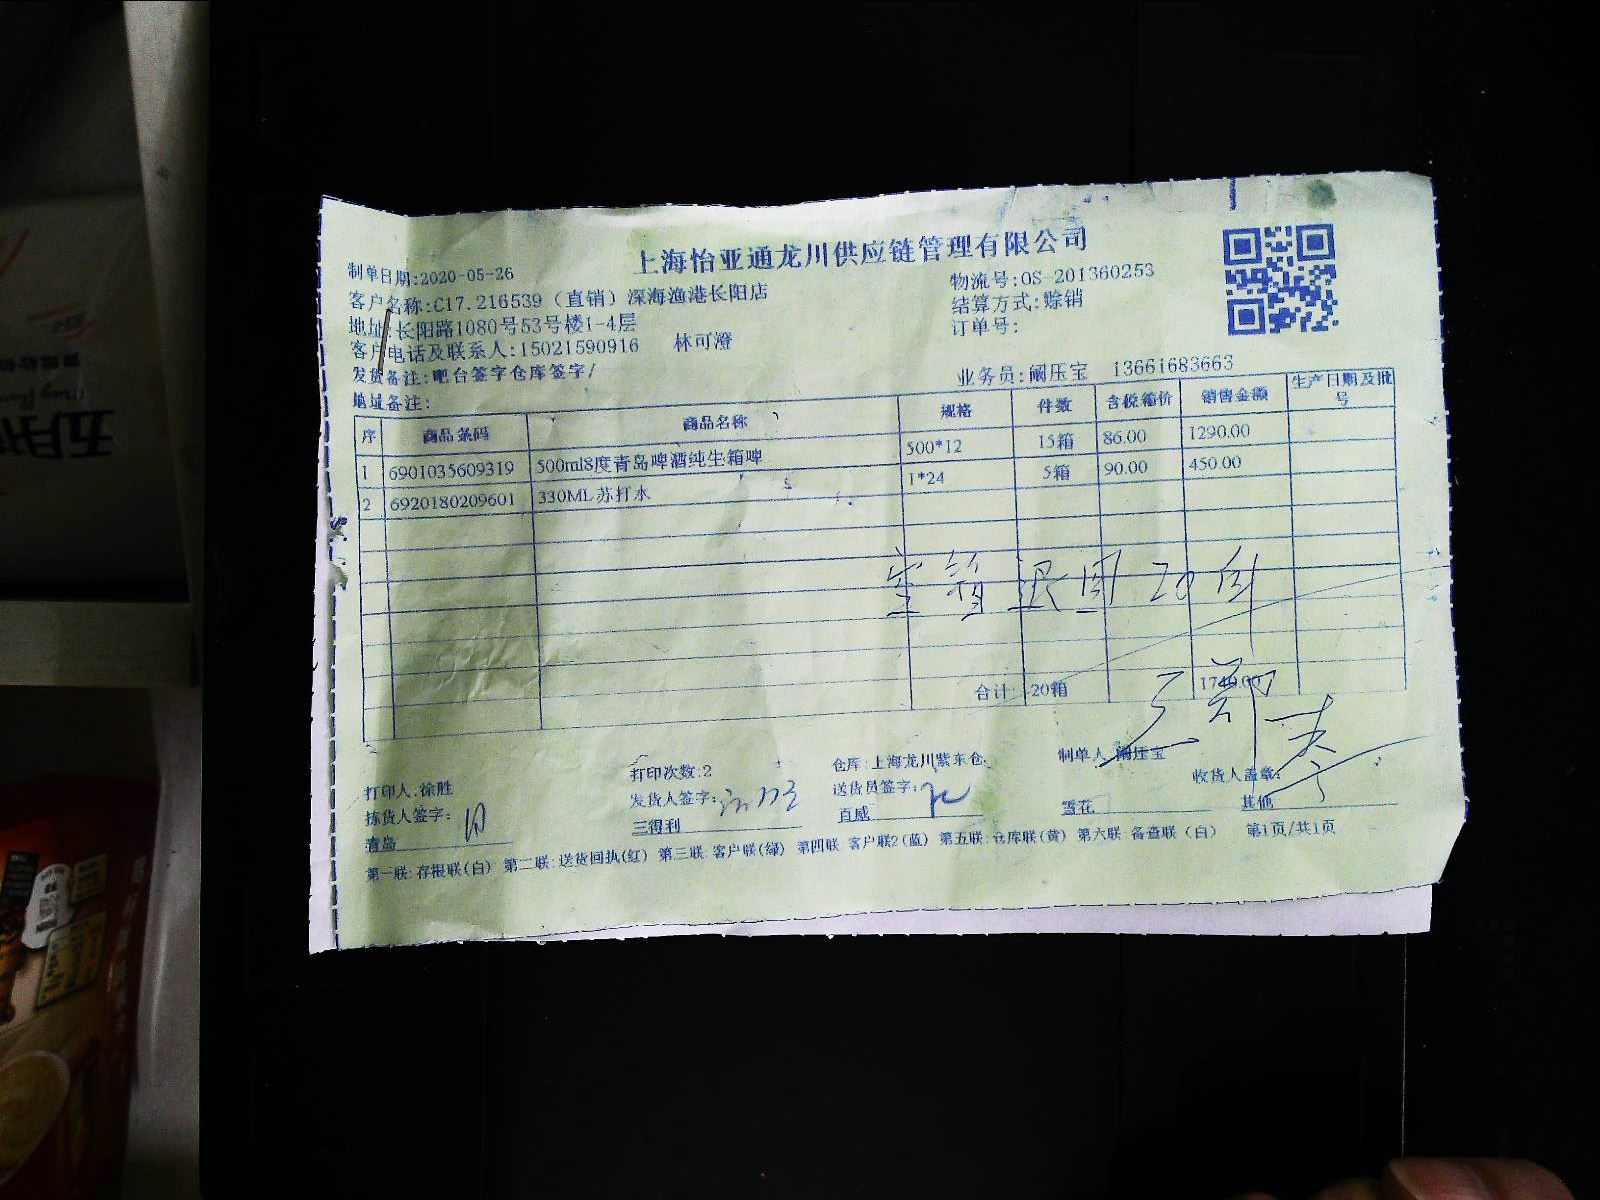 上海怡亚通龙川供应链管理有限公司
制单日期:2020-05-26
物流号:OS-201360253
客户名称:C17.216539（直销）深海渔港长阳店
结算方式:赊销
地址:长阳路1080号53号楼1-4层
订单号:
客户电话及联系人:15021590916 林可澄
发货备注:吧台签字仓库签字/
业务员:阚压宝 13661683663
地址备注:
序 商品条码 商品名称 规格 件数 含税箱价 销售金额 生产日期及批号
1 6901035609319 500ml8度青岛啤酒纯生箱啤 500*12 15箱 86.00 1290.00
2 6920180209601 330ML苏打水 1*24 5箱 90.00 450.00
空箱退回20
合计: 20箱 1740.00
打印人:徐胜 打印次数:2 仓库:上海龙川紫东仓 制单人 阚压宝
拣货人签字: 发货人签字: 送货员签字: 收货人盖章:
青岛 三得利 百威 雪花 其他
第一联:存根联(白) 第二联:送货回执(红) 第三联:客户联(绿) 第四联 客户联2(蓝) 第五联:仓库联(黄) 第六联:备查联(白) 第1页/共1页
五月